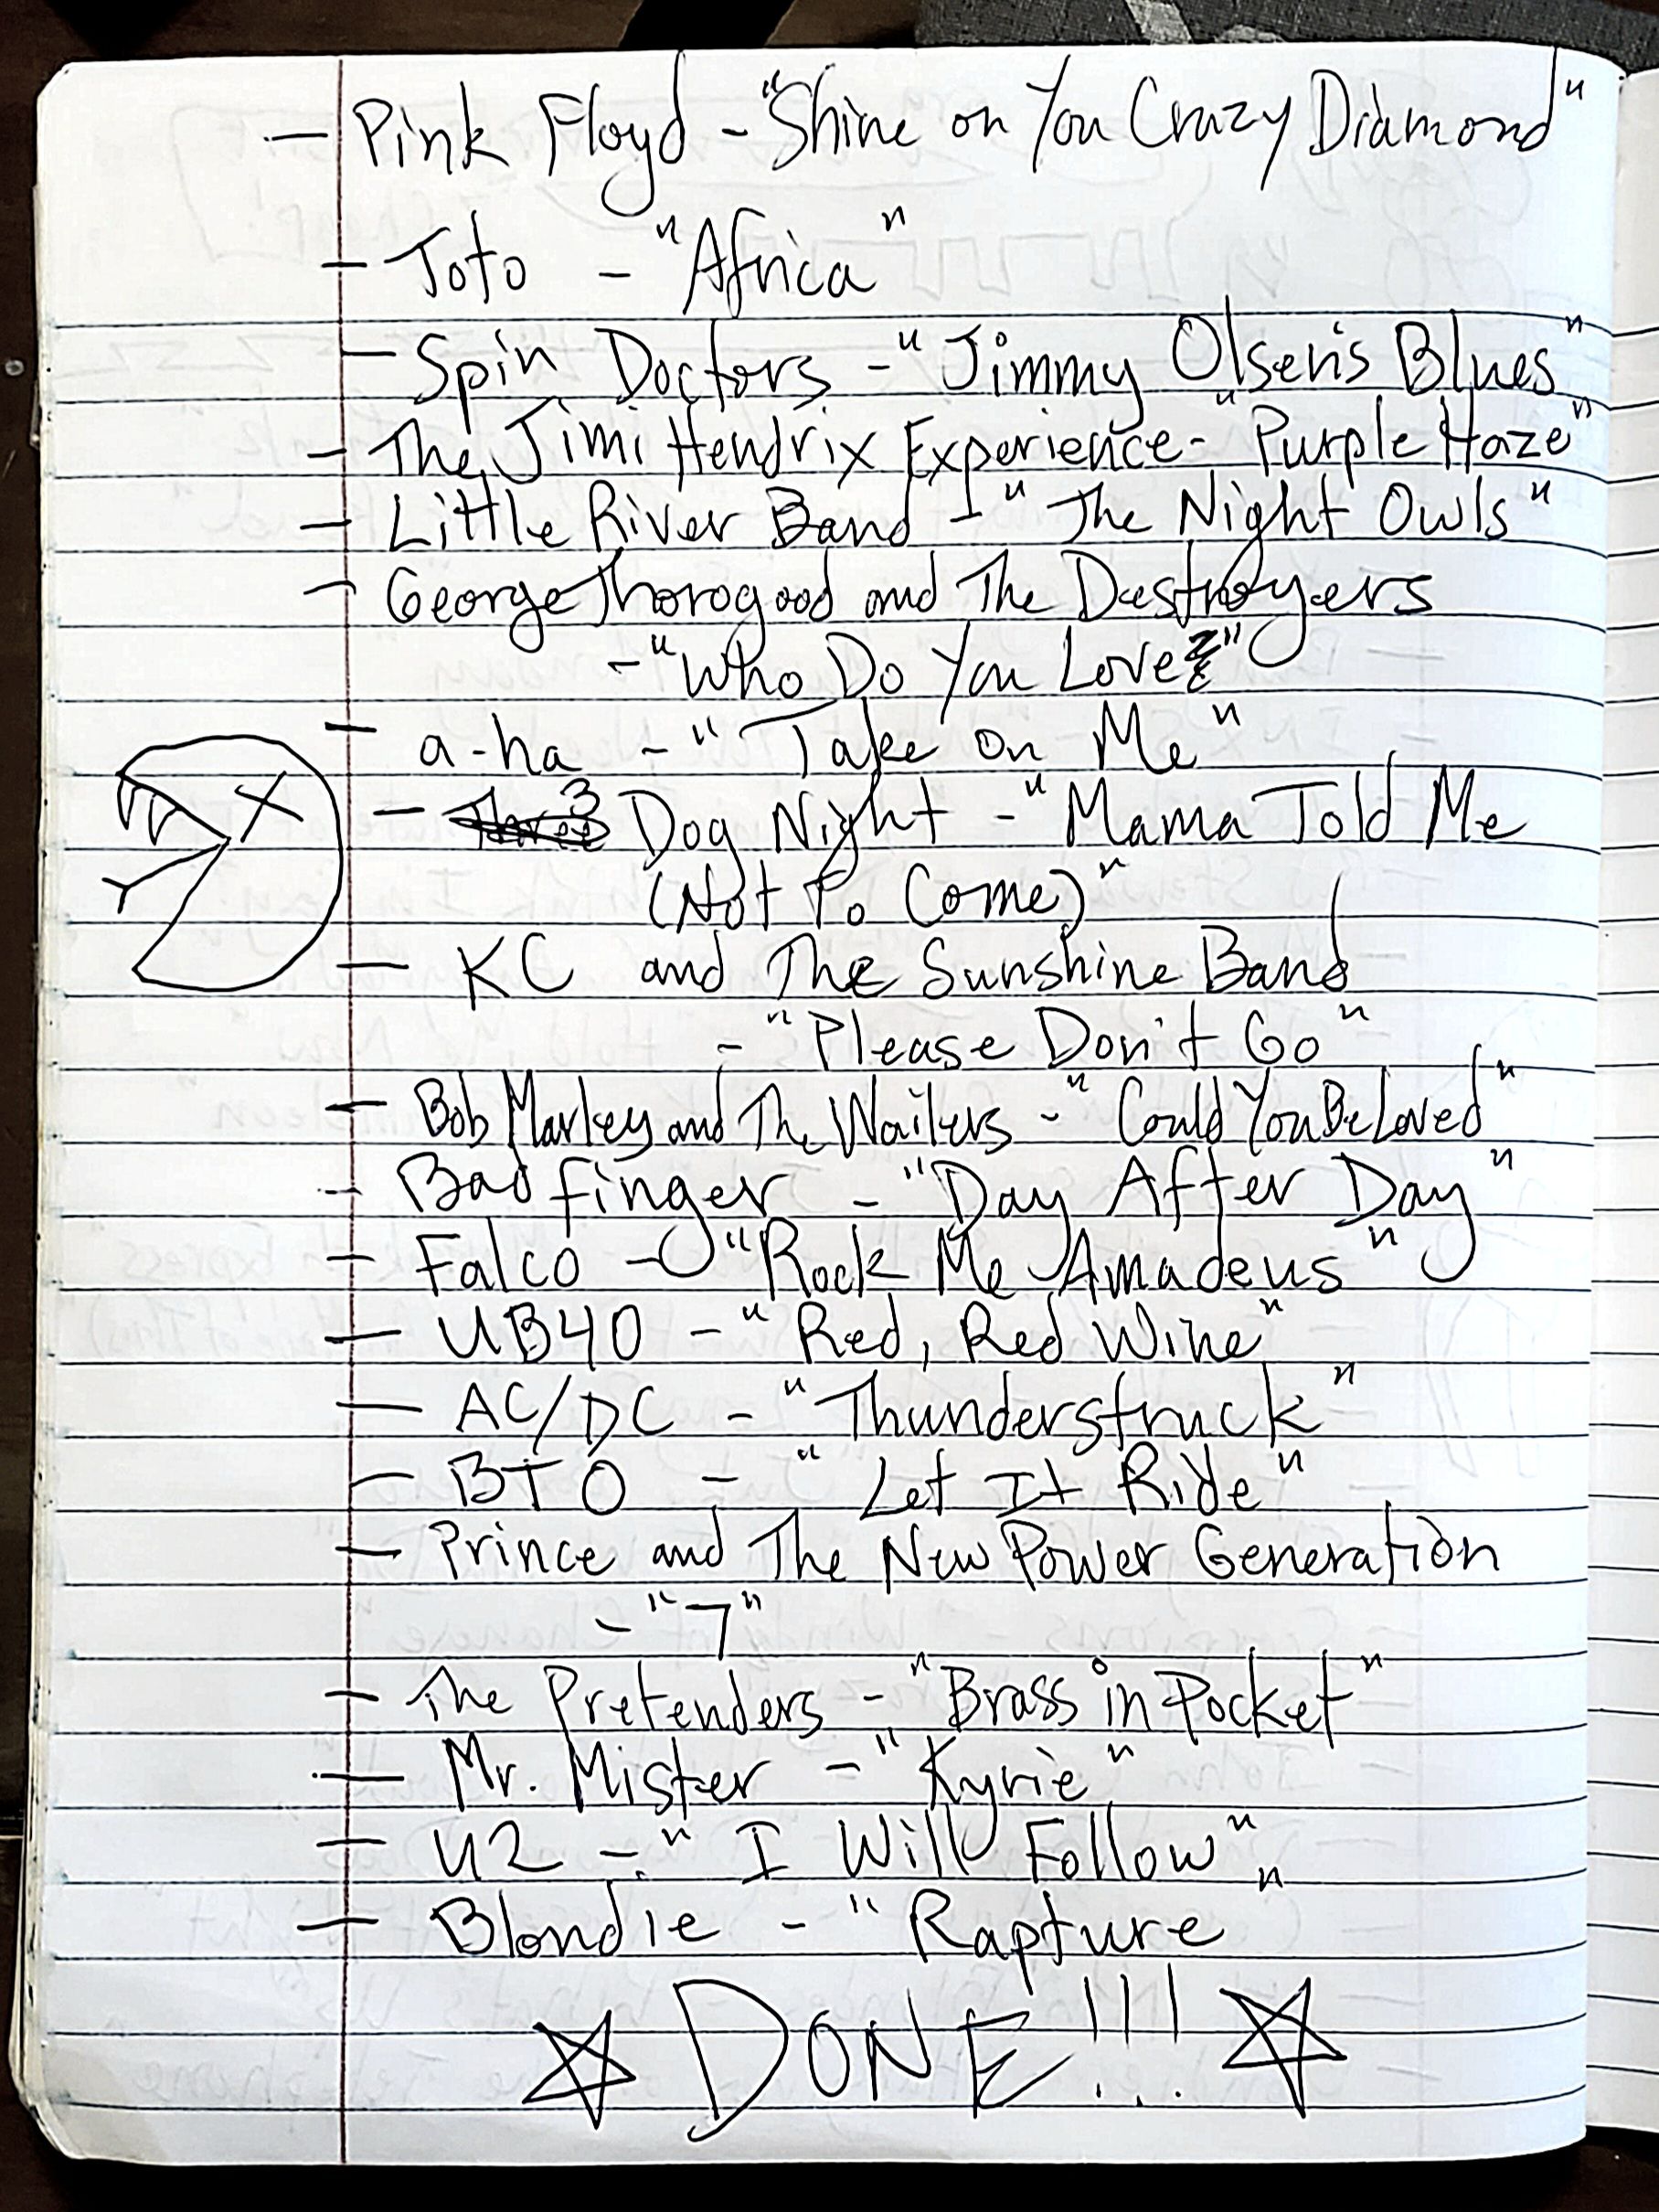 - Pink Floyd - "Shine on You Crazy Diamond"
- Toto - "Africa"
- Spin Doctors - "Jimmy Olsen's Blues"
- The Jimi Hendrix Experience - "Purple Haze"
- Little River Band - "The Night Owls"
- George Thorogood and The Destroyers
- "Who Do You Love?"
- a-ha - "Take on Me"
- Three 3 Dog Night - "Mama Told Me
(Not To Come)"
- KC and The Sunshine Band
- "Please Don't Go"
- Bob Marley and The Wailers - "Could You Be Loved"
- Badfinger - "Day After Day"
- Falco - "Rock Me Amadeus"
- UB40 - "Red, Red Wine"
- AC/DC - "Thunderstruck"
- BTO - "Let It Ride"
- Prince and The New Power Generation
- "7"
- The Pretenders - "Brass in Pocket"
- Mr. Mister - "Kyrie"
- U2 - "I Will Follow"
- Blondie - "Rapture"
DONE!!!